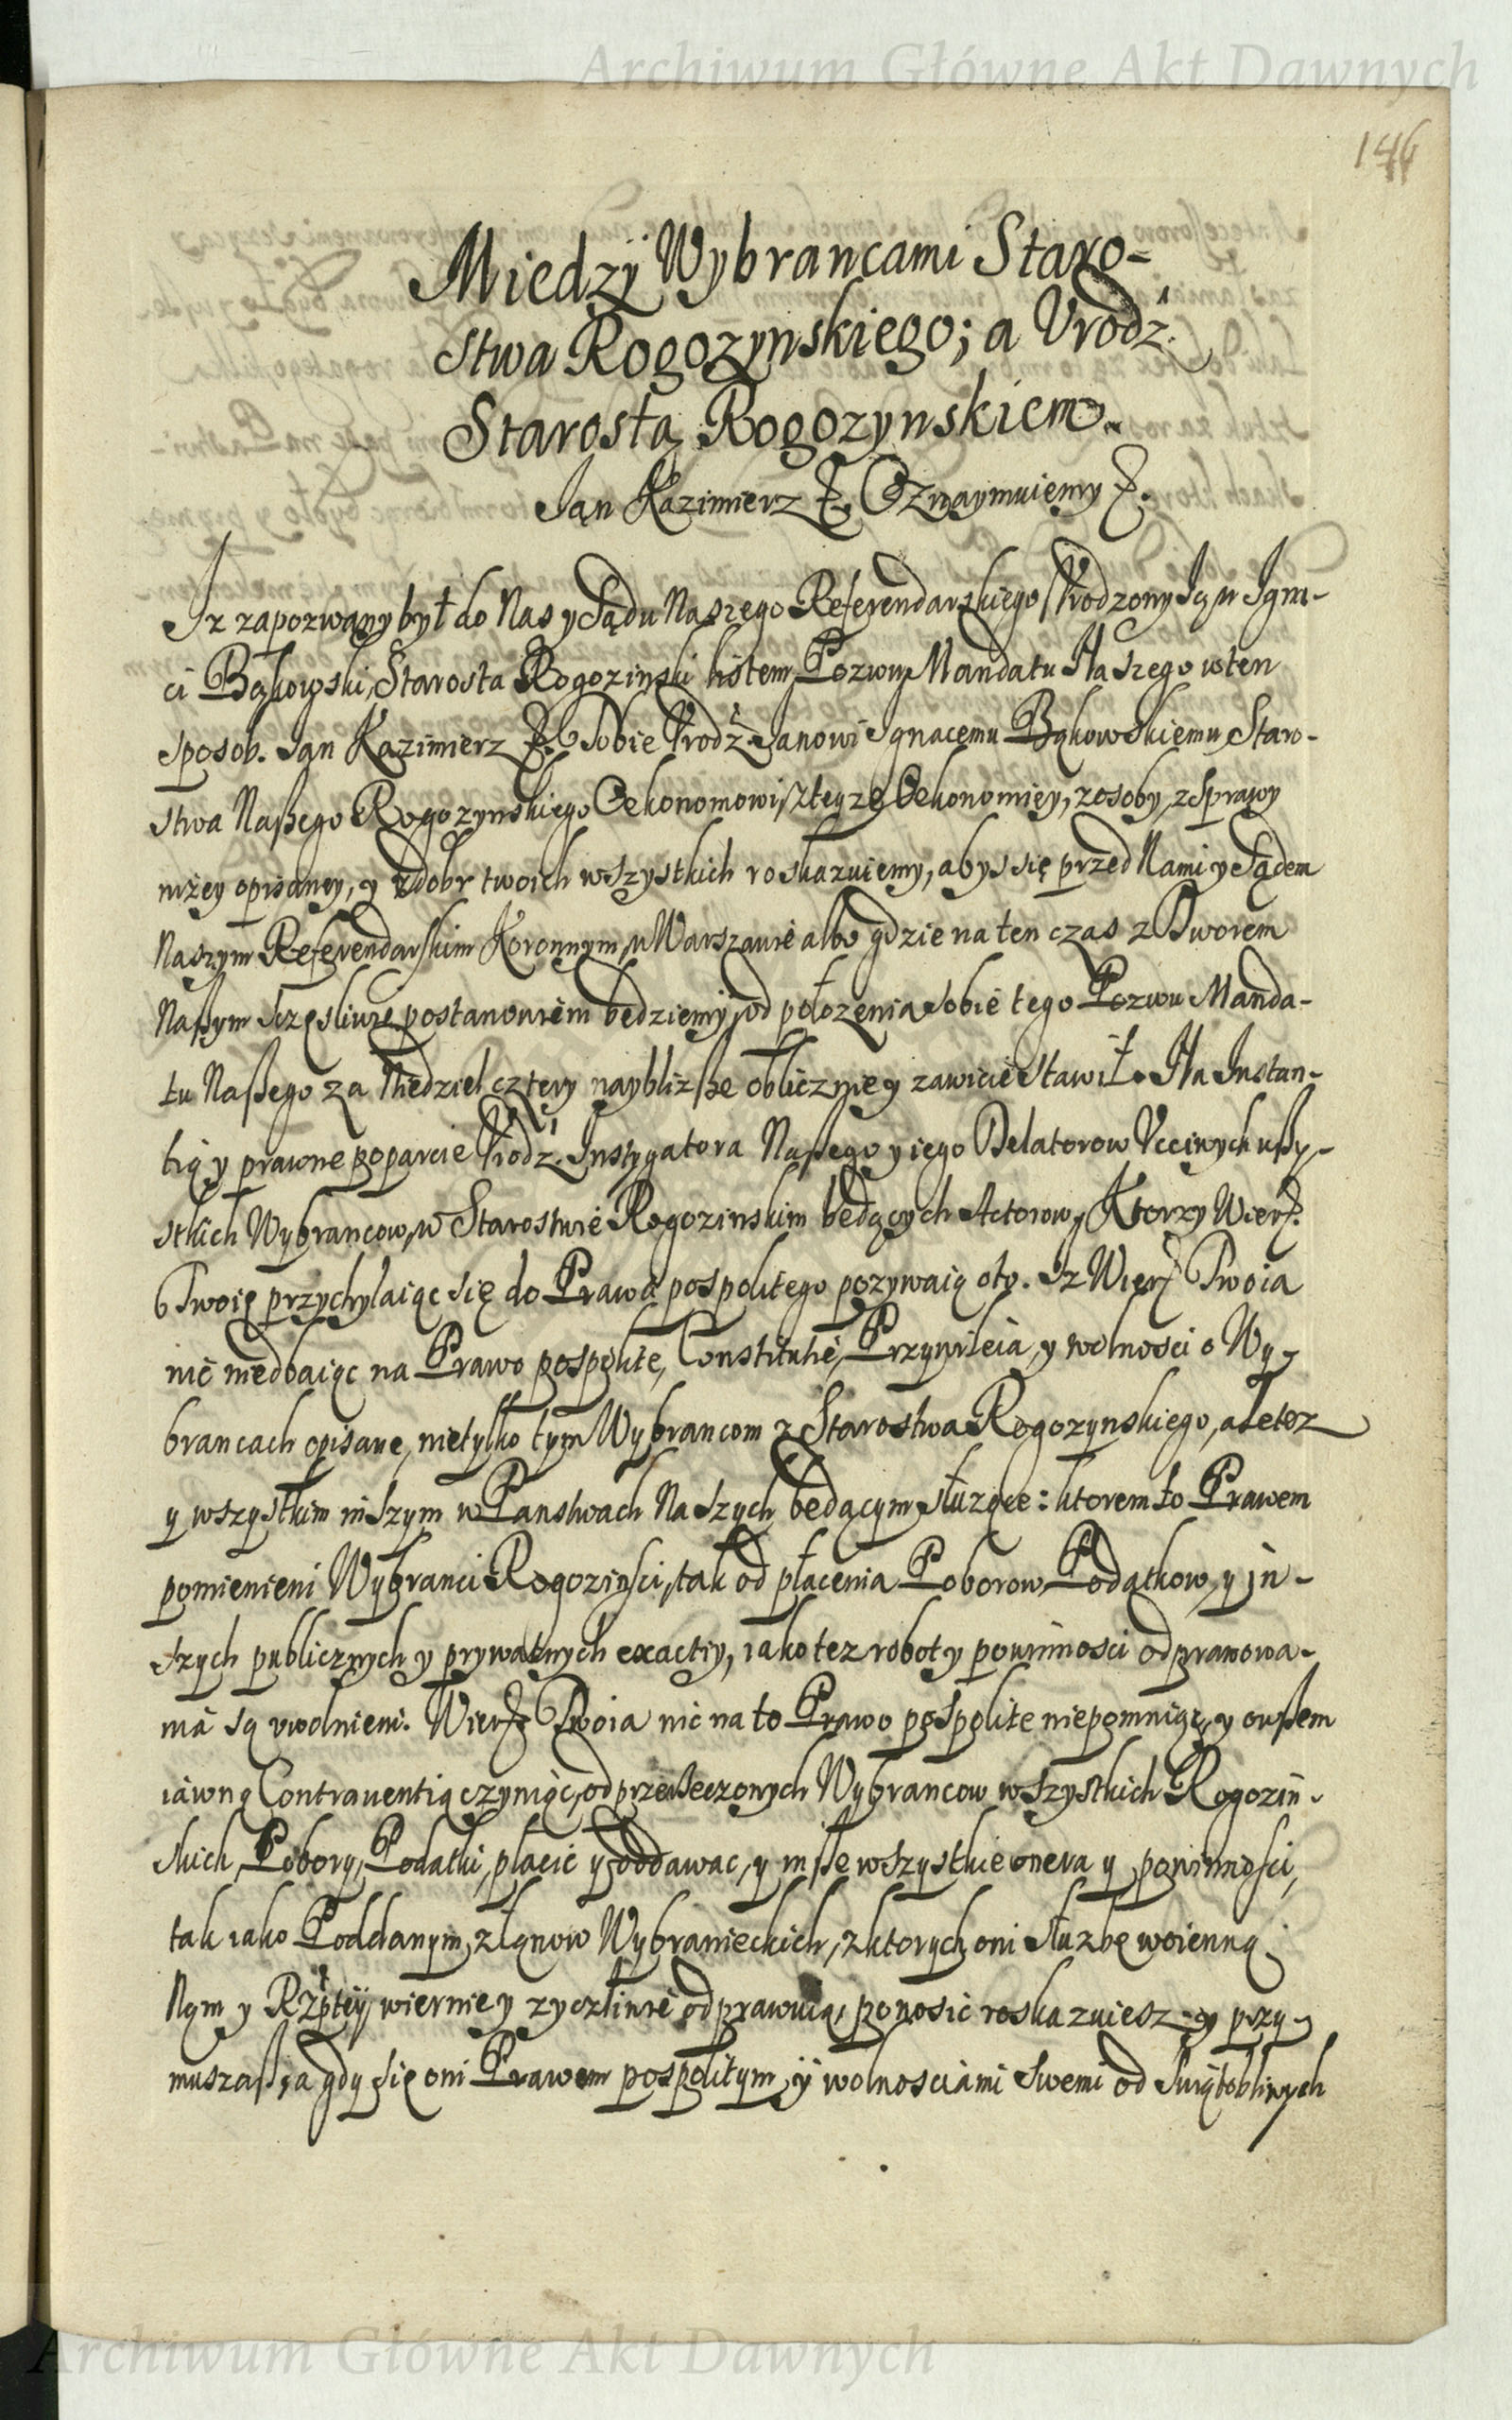 Archiwum Główne Akt Dawnych
146
Miedzÿ Wybrancami Staro-
stwa Rogozynskiego; a Vrodz.
Starostą Rogozynskiem.
Jan Kazimierz Oznaymuiemy
Iz zapozwany był do Nas y Sądu Naszego Referendarskiego Vrodzony Jan Igna-
ci Bąkowski, Starosta Rogozinski listem Pozwu Mandatu Naszego w ten
sposob. Jan Kazimierz Tobie Vrodz. Janowi Ignacemu Bąkowskiemu Staro-
stwa Naßego Rogozynskiego Oekonomowi, z teyze Oekonomięy, z osoby, z sprawy
nizey opisaney, y z dobr twoich wszystkich roskazuiemy, abys się przed Nami y Sądem
Naszym Referendarskim Koronnym w Warszawie albo gdzie na ten czas z Dworem
Naßym szczęsliwie postanowiem będziemy, od połozenia sobie tego Pozwu Manda-
tu Naßego za Niedziel cztery nayblizße oblicznie y zawicie stawił. Na Instan-
tią y prawne poparcie Vrodz. Instygatora Naßego y iego Delatorow Vcciwych wßy-
stkich Wybrancow, w Starostwie Rogozinskim będących Actorow, Ktorzy Wierz.
Twoię przychylaiąc się do Prawa pospolitego pozywaią oto. Iz Wierz Twoia
nic niedbaiąc na Prawo pospolite, Constitutie, Przywileia, y wolnosci o Wy-
brancach opisane, nietylko tym Wybrancom z Starostwa Rogozynskiego, ale tez
y wszystkim inszym w Panstwach Naszych będącym słuzące: ktorem to Prawem
pomienieni Wybranci Rogozinsci, tak od płacenia Poborow, Podatkow, y in-
szych publicznych y prywatnych exactiy, iako tez roboty powinnosci odprawowa-
nia są vwolnieni. Wierz Twoia nic na to Prawo pospolite niepomniąc, y owßem
iawną Contrauentią czyniąc, od przerzeczonych Wybrancow wszystkich Rogozin-
skich, Pobory, Podatki, płacic y oddawac, y inße wszystkie onera y powinnosci,
tak iako Poddanym, z łanow Wybranieckich, z ktorych oni słuzbę woienną
Nam y Rzptey wiernie y zyczliwie odprawuią, ponosic roskazuiesz, y przy-
muszaß, a gdy się oni Prawem pospolitym, ÿ wolnosciami swemi od swiętobliwych
Archiwum Główne Akt Dawnych